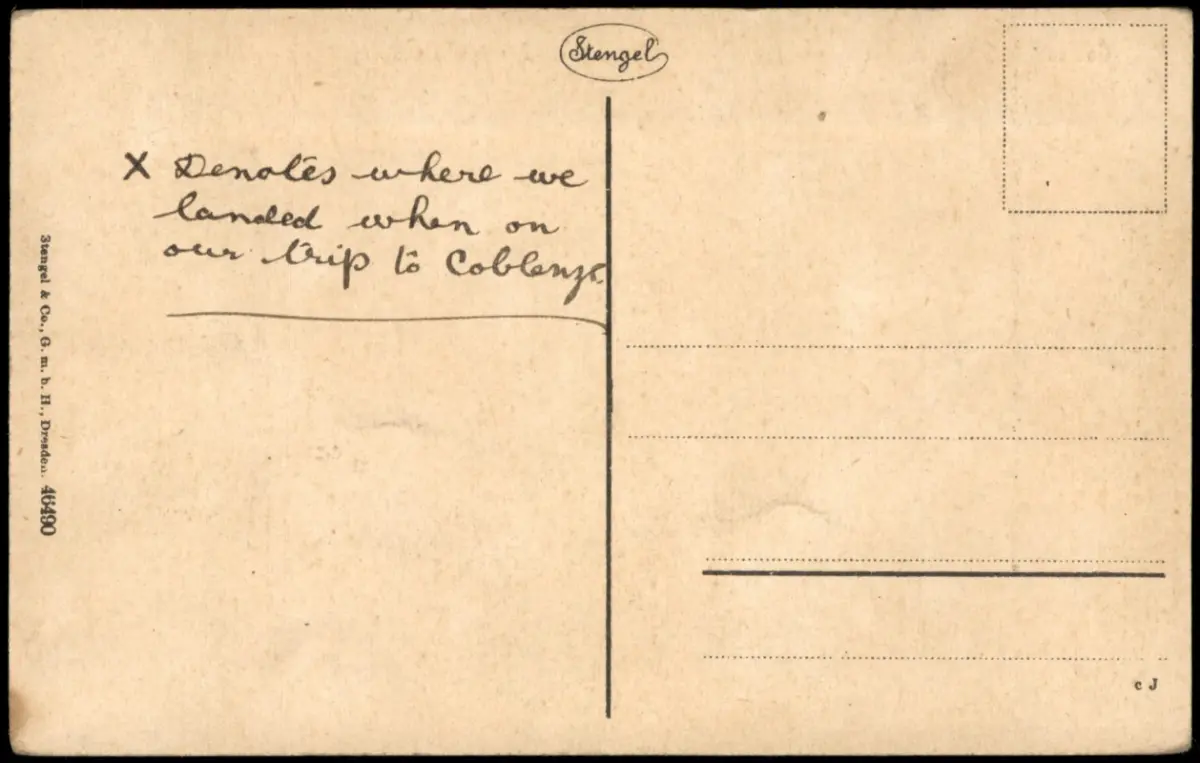 Stengel
X Denotes where we
landed when on
our trip to Coblenz.
Stengel & Co., G. m. b. H., Dresden. 46490
c J